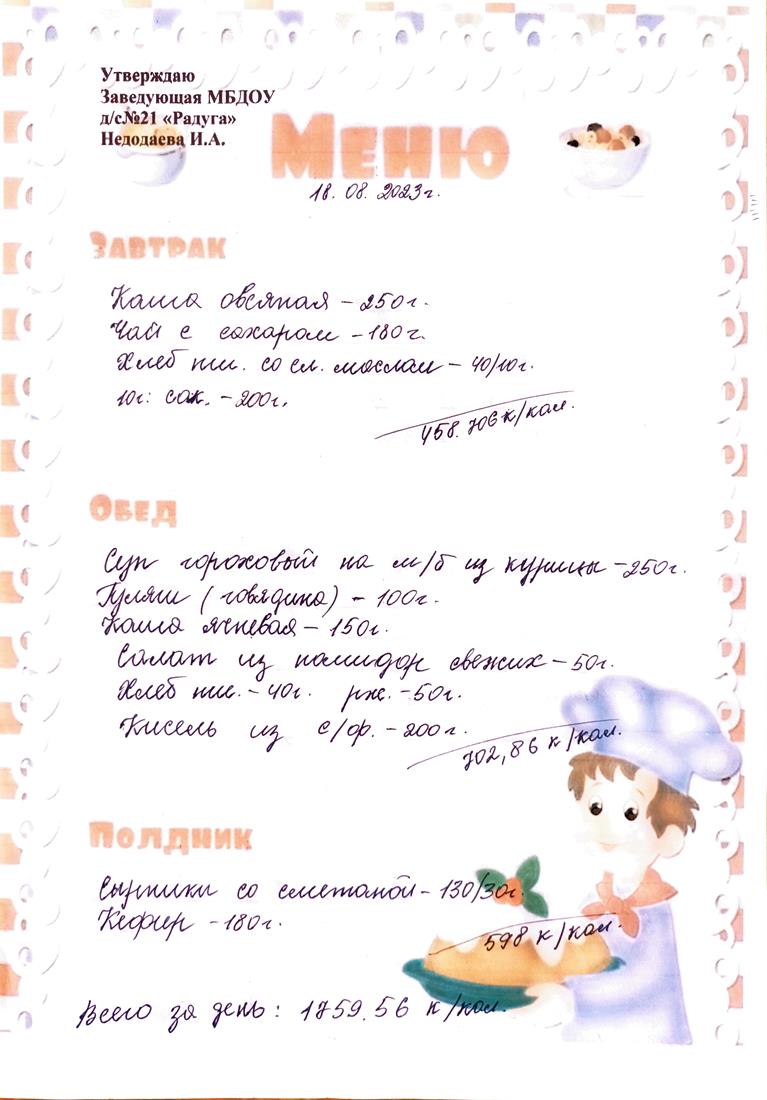 Утверждаю
Заведующая МБДОУ
д/с№21 «Радуга»
Недодаева И.А.
Меню
18. 08. 2023г.
Завтрак
Каша овсяная - 250г.
Чай с сахаром - 180г.
Хлеб пш. со сл. маслом - 40/10г.
10г: сок. - 200г.
458.706 к/кал.
Обед
Суп гороховый на м/б из курицы - 250г.
Гуляш (говядина) - 100г.
Каша ячневая - 150г.
Салат из помидор свежих - 50г.
Хлеб пш. - 40г. рж. - 50г.
Кисель из с/фр. - 200г.
702,86 к/кал.
Полдник
Сырники со сметаной - 130/30г.
Кефир - 180г.
598 к/кал.
Всего за день: 1759.56 к/кал.